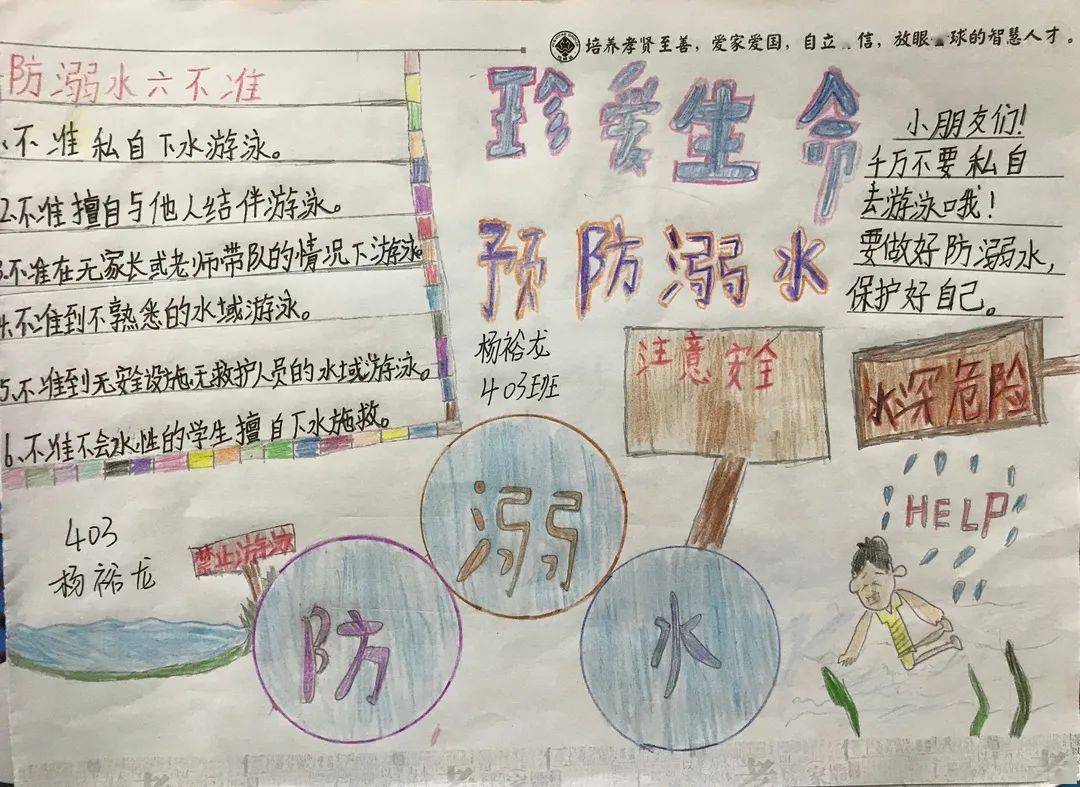 培养孝贤至善，爱家爱国，自立 信，放眼 球的智慧人才。
防溺水六不准
1.不准私自下水游泳。
2.不准擅自与他人结伴游泳。
3.不准在无家长或老师带队的情况下游泳
4.不准到不熟悉的水域游泳。
5.不准到无安全设施无救护人员的水域游泳。
6、不准不会水性的学生擅自下水施救。
珍爱生命
预防溺水
小朋友们！
千万不要私自
去游泳哦！
要做好防溺水，
保护好自己。
杨裕龙
403班
注意安全
水深危险
HELP
403
杨裕龙
禁止游泳
防
溺
水